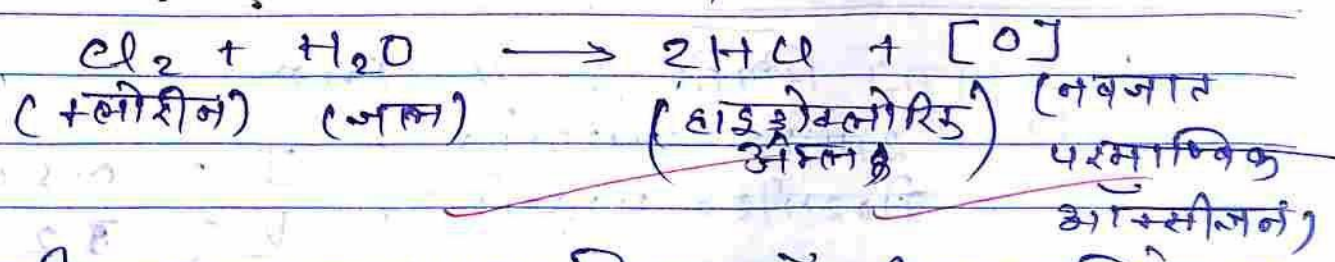 Cl₂ + H₂O ⟶ 2HCl + [O]
(क्लोरीन) (जल) (हाइड्रोक्लोरिक (नवजात
अम्ल) परमाण्विक
ऑक्सीजन)